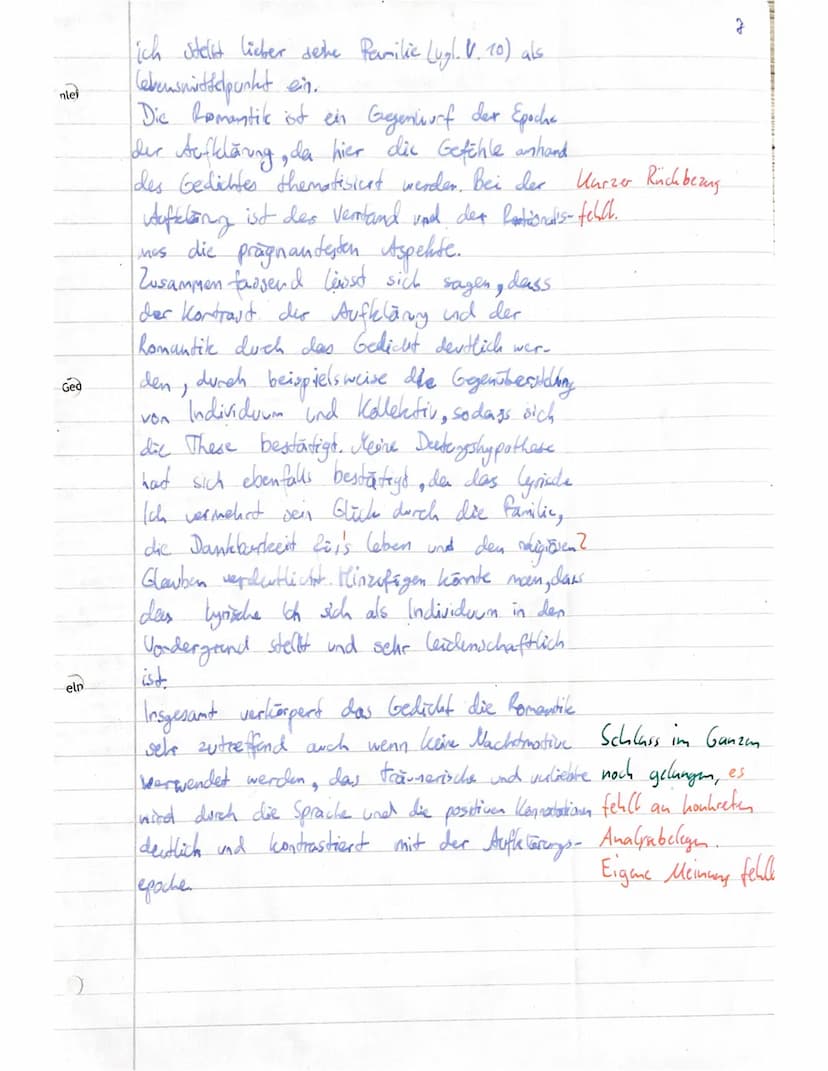 7
ich stellt lieber seine Familie (vgl. V. 10) als
nlei
Lebensmittelpunkt ein.
Die Romantik ist ein Gegenwurf der Epoche
der Aufklärung, da hier die Gefühle anhand
des Gedichtes thematisiert werden. Bei der
Kurzer Rückbezug
Aufklärung ist der Verstand und der Rationalis-
fehlt.
mus die prägnantesten Aspekte.
Zusammenfassend lässt sich sagen, dass
der Kontrast der Aufklärung und der
Romantik durch das Gedicht deutlich wer-
Ged
den, durch beispielsweise die Gegenüberstellung
von Individuum und Kollektiv, sodass sich
die These bestätigt. Meine Deutungshypothese
hat sich ebenfalls bestätigt, da das Lyrische
Ich vermehrt sein Glück durch die Familie,
die Dankbarkeit für's Leben und den religiösen ?
Glauben verdeutlicht. Hinzufügen könnte man, dass
das Lyrische Ich sich als Individuum in den
Vordergrund stellt und sehr leidenschaftlich
ein
ist.
Insgesamt verkörpert das Gedicht die Romantik
sehr zutreffend auch wenn keine Nachtmotive
Schluss im Ganzen
verwendet werden, das träumerische und verliebte
noch gelungen, es
wird durch die Sprache und die positiven Konnotationen
fehlt an konkreten
deutlich und kontrastiert mit der Aufklärungs-
Analysebelegen.
epoche.
Eigene Meinung fehlt